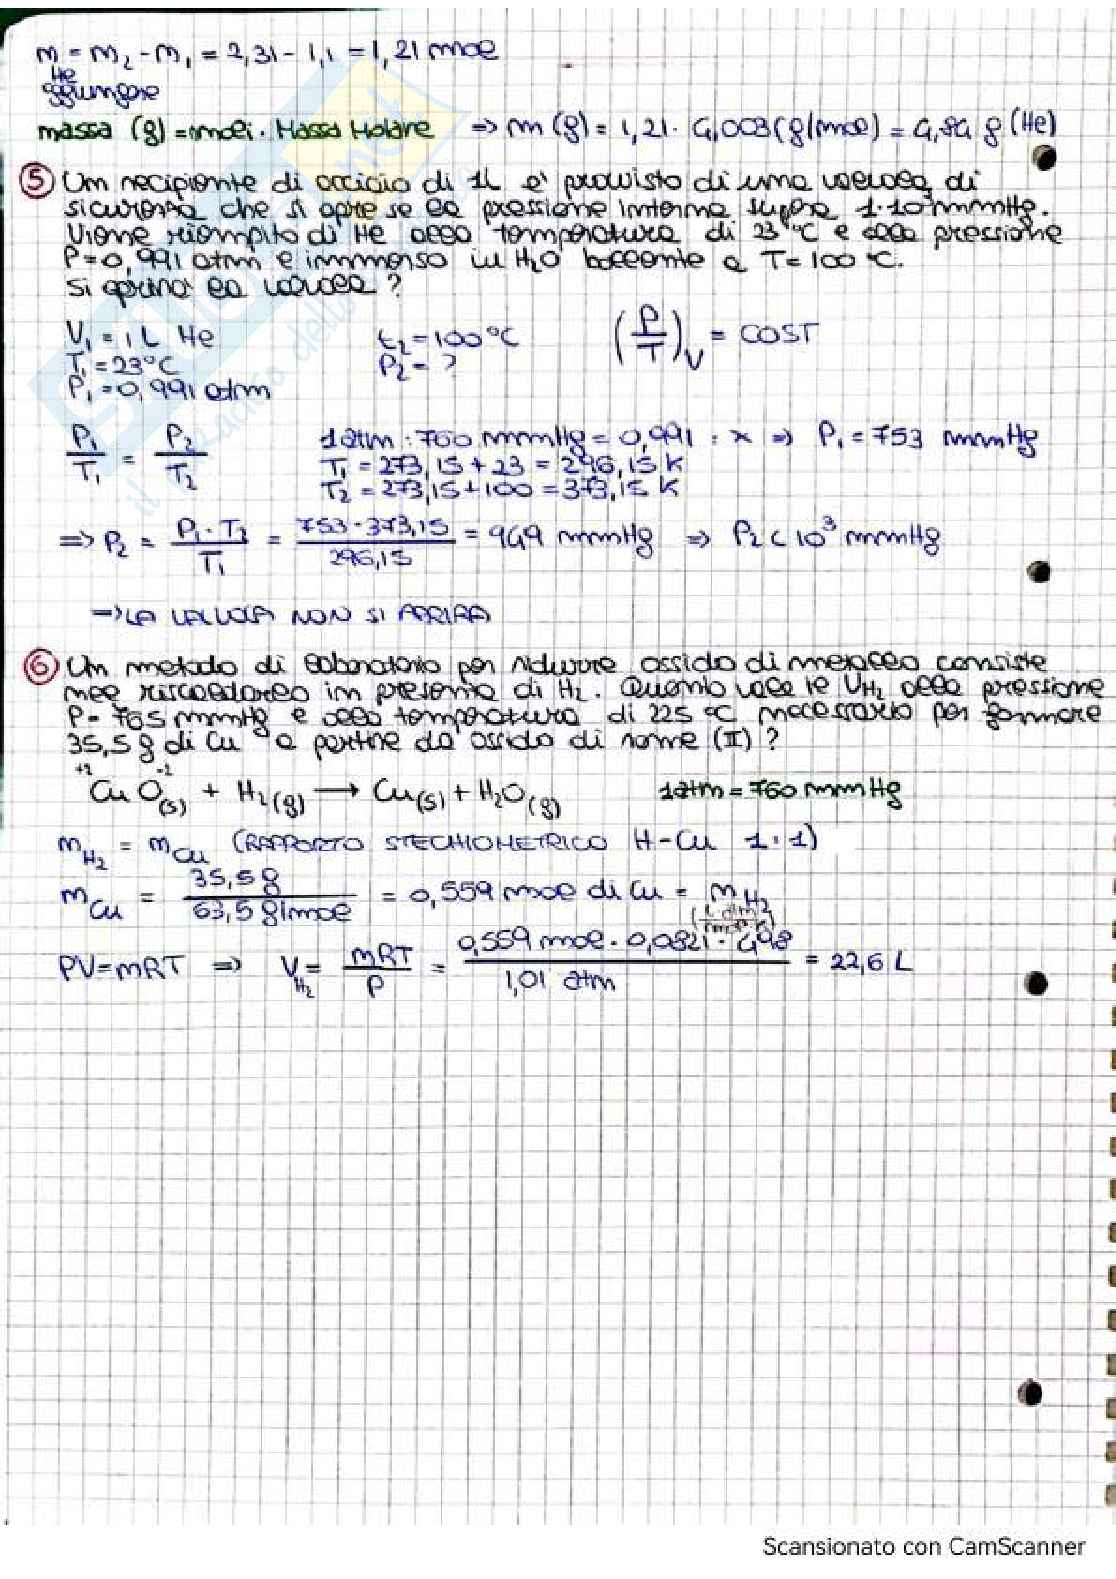 n = n₂ - n₁ = 2,31 - 1,1 = 1,21 mol
He
aggiungere
massa (g) = moli · Massa Molare ⇒ m (g) = 1,21 · 4,003 (g/mol) = 4,84 g (He)
⑤ Un recipiente di acciaio di 1L è provvisto di una valvola di
sicurezza che si apre se la pressione interna supera 1·10³ mmHg.
Viene riempito di He alla temperatura di 23 °C e alla pressione
P=0,991 atm e immerso in H₂O bollente a T=100 °C.
Si aprirà la valvola?
V₁ = 1 L He t₂ = 100°C (P/T)V = COST
T₁ = 23°C P₂ = ?
P₁ = 0,991 atm
P₁/T₁ = P₂/T₂ 1 atm : 760 mmHg = 0,991 : x ⇒ P₁ = 753 mmHg
T₁ = 273,15 + 23 = 296,15 K
T₂ = 273,15 + 100 = 373,15 K
⇒ P₂ = P₁·T₂/T₁ = 753·373,15/296,15 = 949 mmHg ⇒ P₂ < 10³ mmHg
⇒ LA VALVOLA NON SI APRIRÀ
⑥ Un metodo di laboratorio per ridurre ossido di metallo consiste
nel riscaldarlo in presenza di H₂. Quanto vale il VH₂ alla pressione
P= 765 mmHg e alla temperatura di 225 °C necessario per formare
35,5 g di Cu a partire da ossido di rame (II)?
+2 -2
CuO(s) + H₂(g) → Cu(s) + H₂O(g) 1 atm = 760 mmHg
nH₂ = nCu (RAPPORTO STECHIOMETRICO H-Cu 1:1)
nCu = 35,5 g / 63,5 g/mol = 0,559 mol di Cu = nH₂
PV=nRT ⇒ VH₂ = nRT/P = 0,559 mol · 0,0821 · 498 / 1,01 atm = 22,6 L
Scansionato con CamScanner